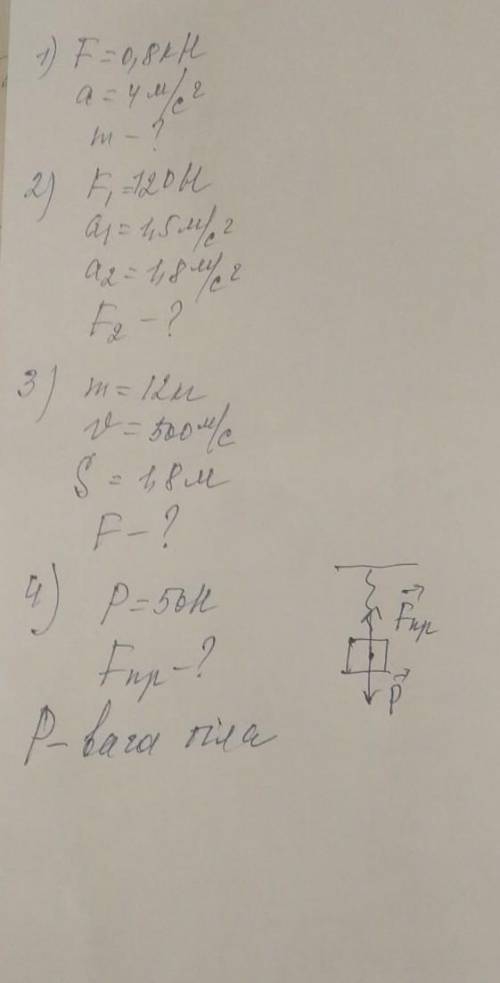 1) F = 0,8 кН
a = 4 м/с²
m - ?
2) F₁ = 120 Н
a₁ = 1,5 м/с²
a₂ = 1,8 м/с²
F₂ - ?
3) m = 12 кг
v = 500 м/с
S = 1,8 м
F - ?
4) P = 50 Н
Fпр - ?
P - вага тіла
Fпр
P